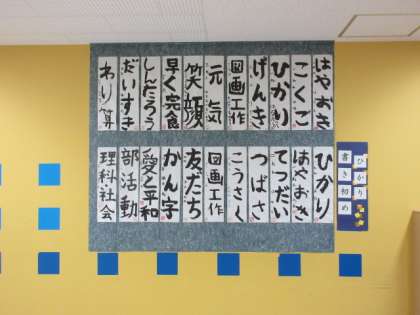 ひかり
書き初め
はやおき
こくご
ひかり
げんき
図画工作
元気
笑顔
早く完食
しんたろう
だいすき
わり算
ひかり
はやおき
てつだい
つばさ
こうさく
図画工作
友だち
かん字
愛と平和
部活動
理科・社会